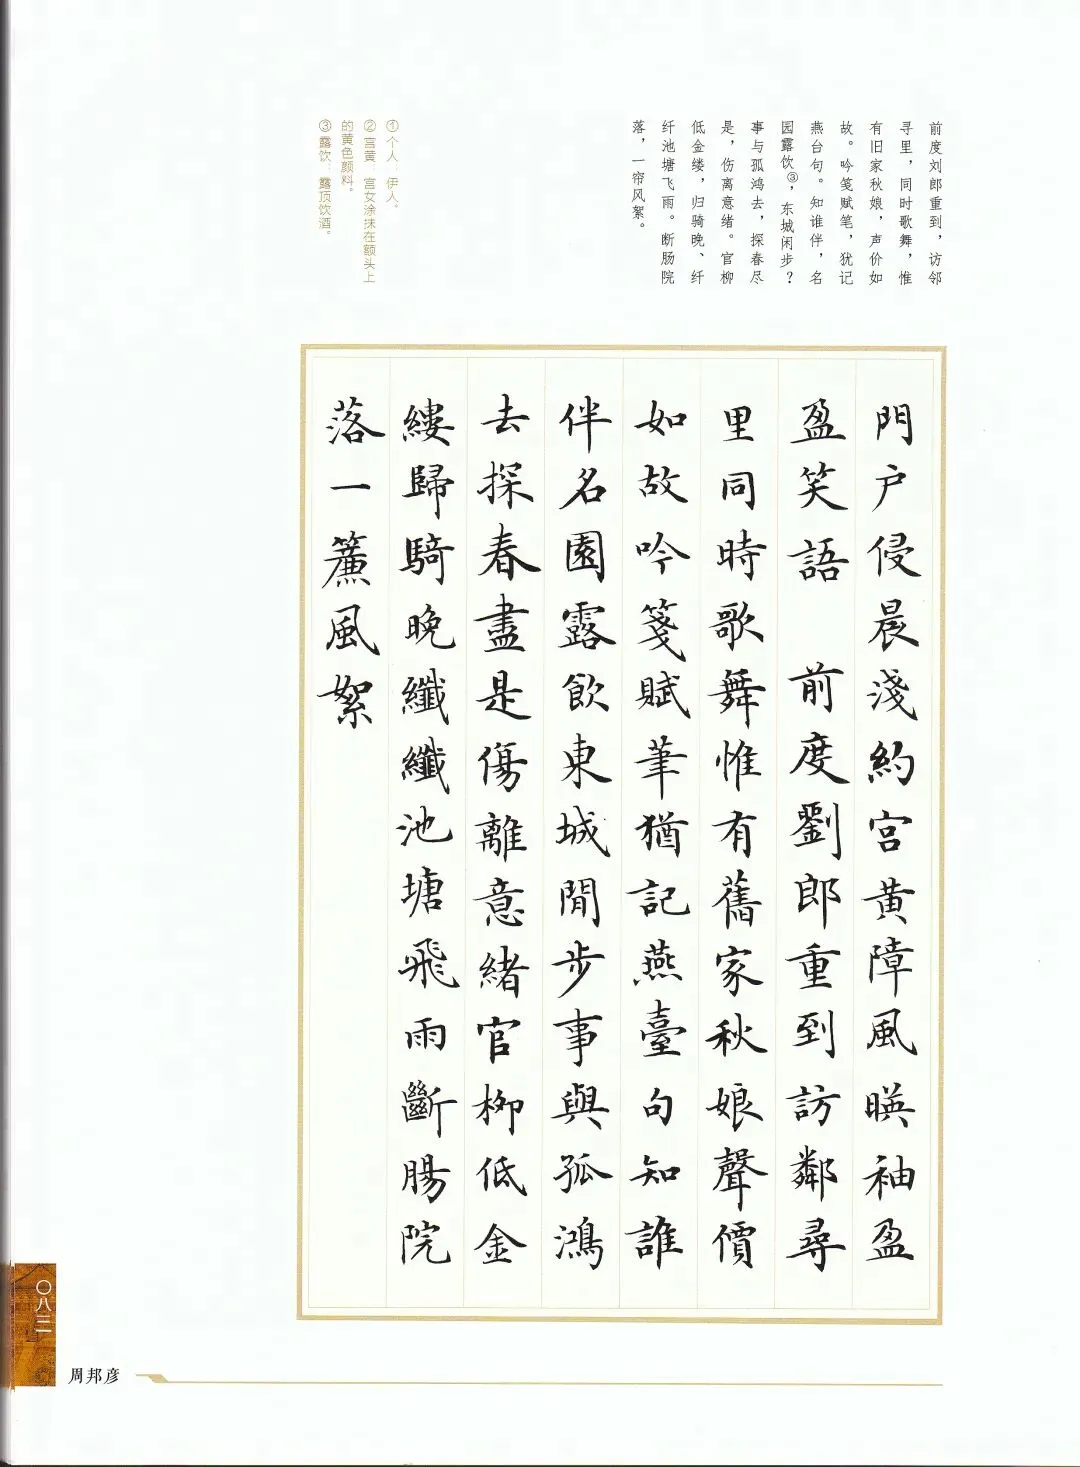 前度刘郎重到，访邻
寻里，同时歌舞，惟
有旧家秋娘，声价如
故。吟笺赋笔，犹记
燕台句。知谁伴，名
园露饮③，东城闲步？
事与孤鸿去，探春尽
是，伤离意绪。官柳
低金缕，归骑晚、纤
纤池塘飞雨。断肠院
落，一帘风絮。
①个人：伊人。
②宫黄：宫女涂抹在额头上
的黄色颜料。
③露饮：露顶饮酒。
門户侵晨淺約宫黄障風暎袖盈
盈笑語 前度劉郎重到訪鄰尋
里同時歌舞惟有舊家秋娘聲價
如故吟箋賦筆猶記燕臺句知誰
伴名園露飲東城閒步事與孤鴻
去探春盡是傷離意緒官柳低金
縷歸騎晚纖纖池塘飛雨斷腸院
落一簾風絮
〇八三
周邦彦